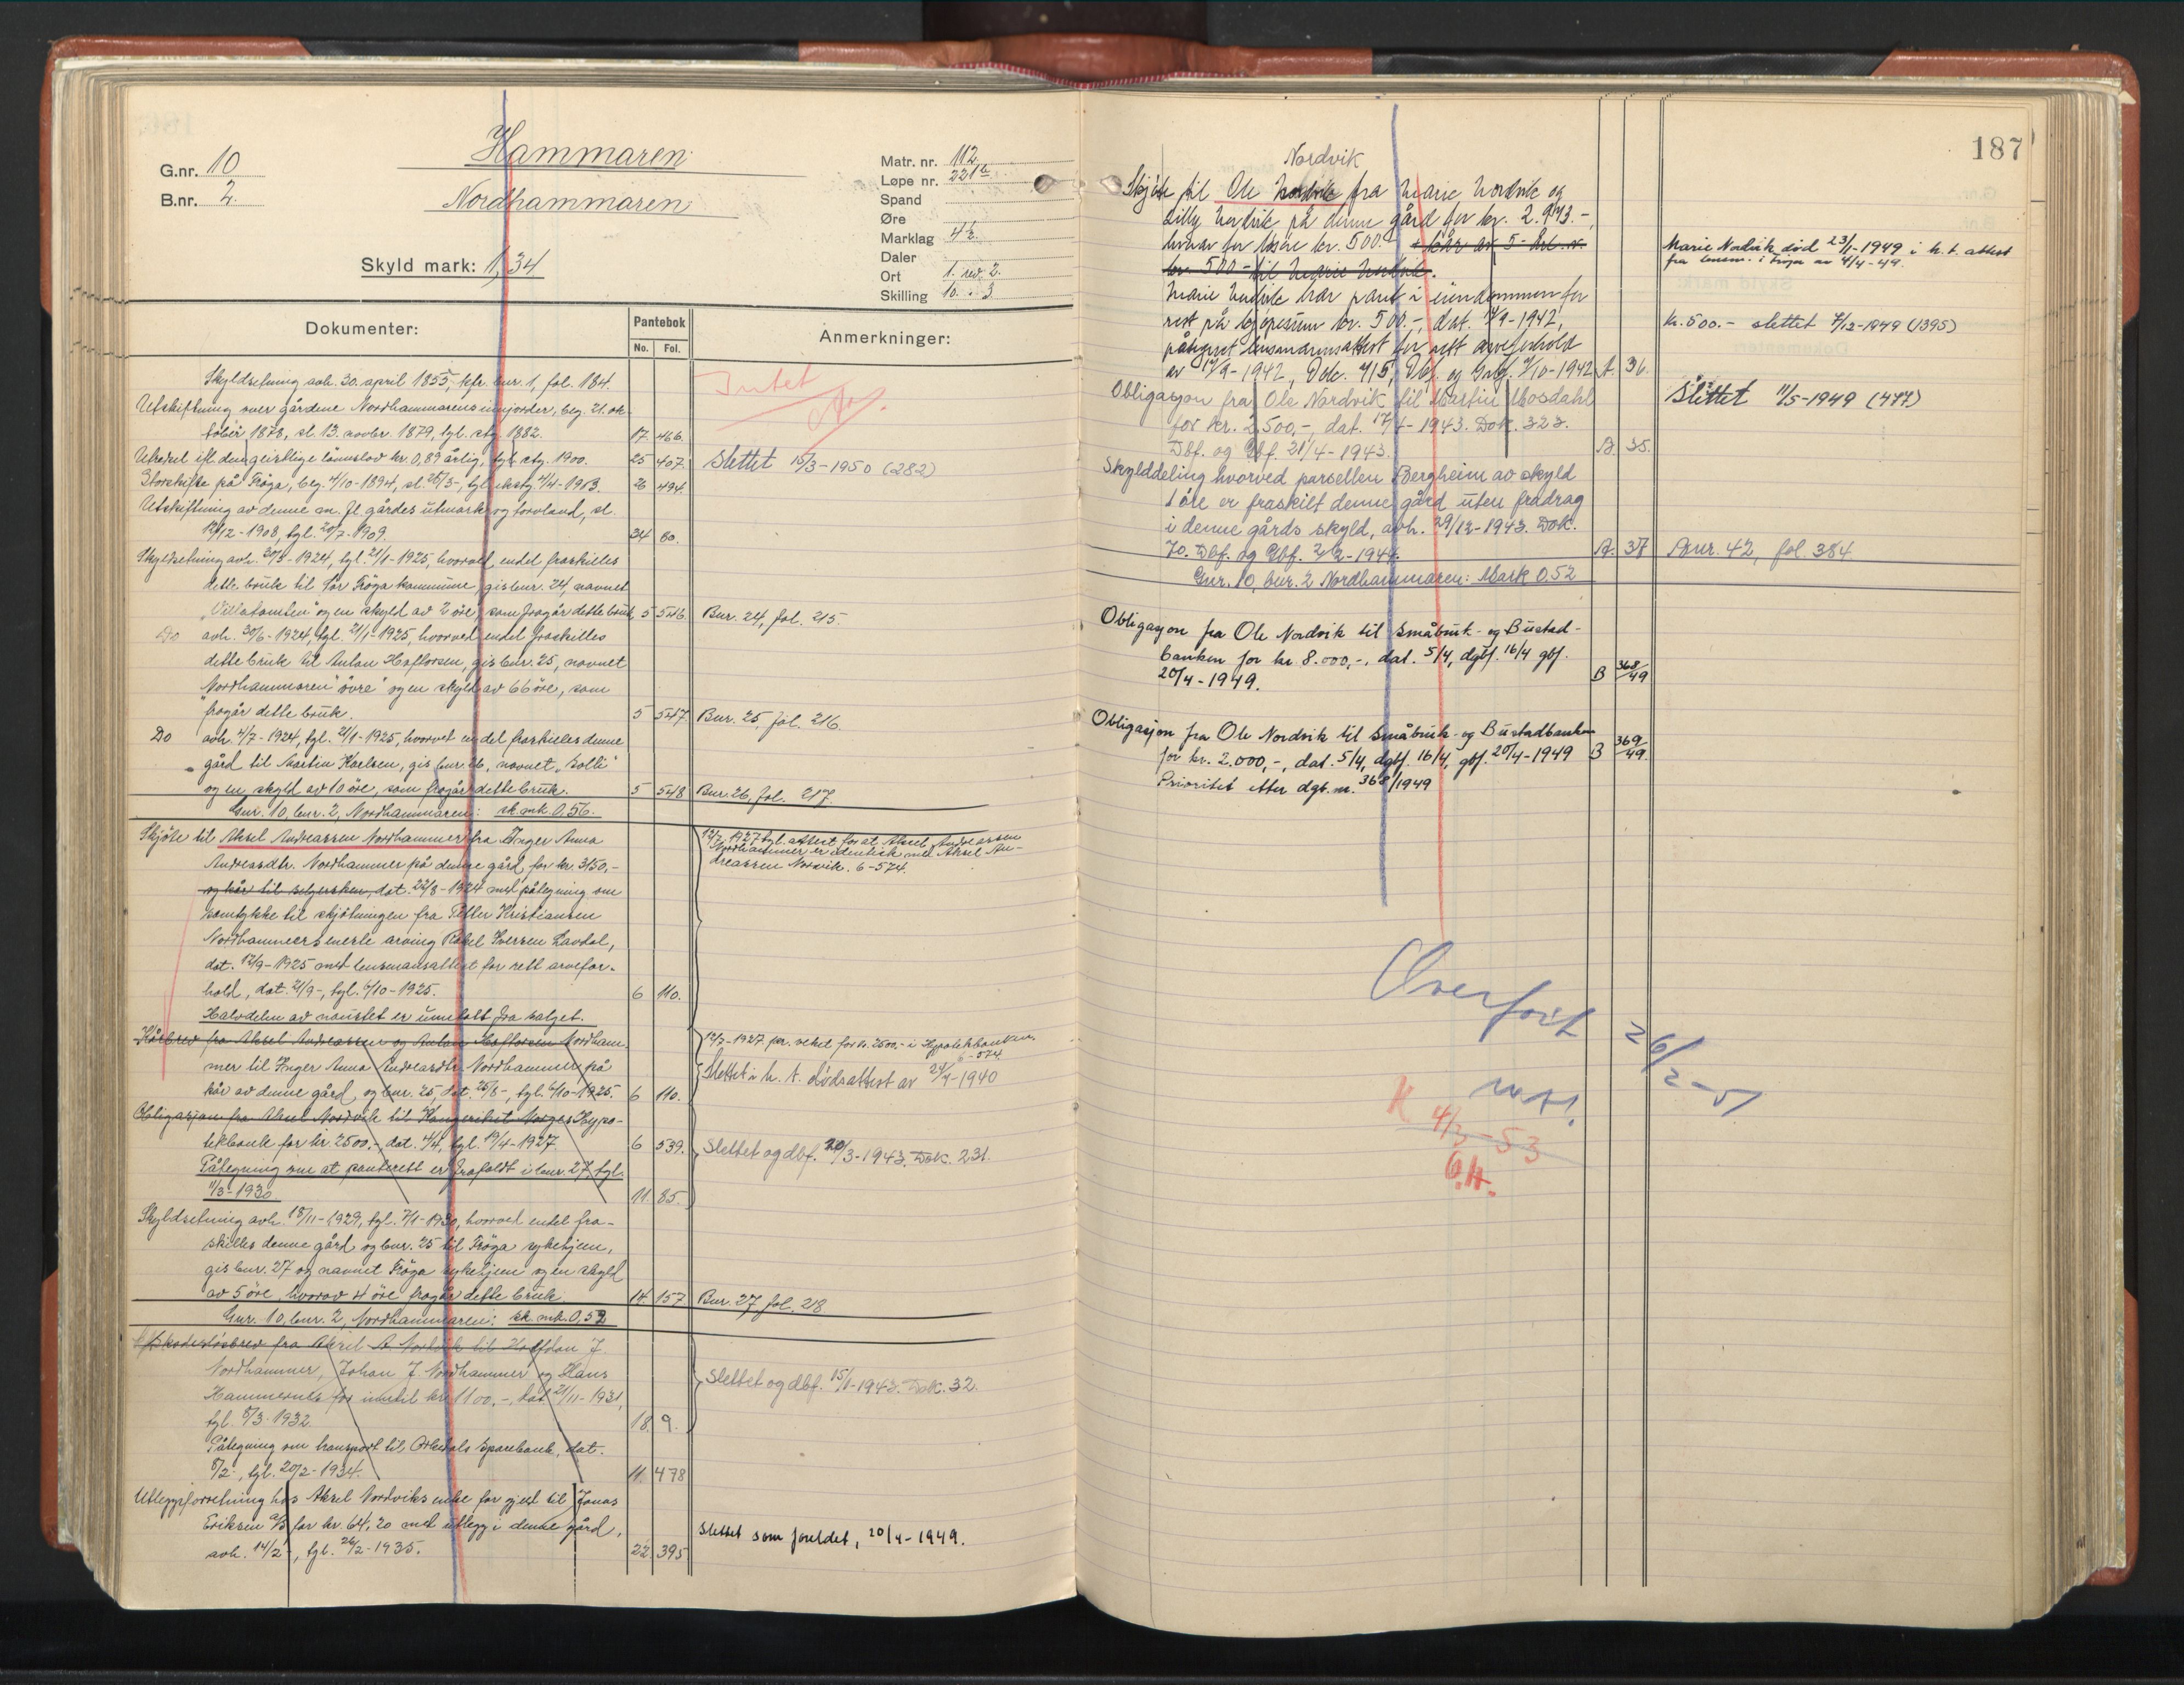 G.nr. 10
B.nr. 2.
Hammaren
Nordhammaren
Skyld mark: 1,34
Matr. nr. 112
Løpe nr. 221a
Spand
Øre
Marklag 4½
Daler
Ort 1. rev. 2.
Skilling 10. - 3
Dokumenter:
Pantebok
No. Fol.
Anmerkninger:
Skyldsetning avh. 30. april 1855, kfr. bnr. 1, fol. 184.
Utskiftning over gårdene Nordhammarens innjorder, beg. 21. ok-
tober 1878, sl. 13. novbr. 1879, tgl. 1882. 17. 466.
Intet
Utvekel ifl. den geistlige lönnslov kr. 0,89 årlig, tgl. 1900. 25 407. Slettet 15/3-1950 (282)
Storskifte på Fröya, beg. 4/10-1894, sl. 25/3-, tgl. 4/4-1903. 26 494.
Utskiftning av denne m. fl. gårdes utmark og torvland, sl.
12/12-1908, tgl. 20/7-1909. 34 80.
Skyldsetning avh. 30/8-1924, tgl. 21/1-1925, hvorved endel fraskilles
dette bruk til Sör Fröya kommune, gis bnr. 24, navnet
"Villatomten" og en skyld av 2 öre, som fragår dette bruk, 5 546. Bnr. 24, fol. 215.
Do avh. 30/6-1924, tgl. 21/1-1925, hvorved endel fraskilles
dette bruk til Anton Hoftorsen, gis bnr. 25, navnet
"Nordhammaren övre" og en skyld av 66 öre, som
fragår dette bruk. 5 547. Bnr. 25, fol. 216
Do avh. 4/7-1924, tgl. 21/1-1925, hvorvet endel fraskilles denne
gård til Martin Karlsen, gis bnr. 26, navnet "Solli"
og en skyld av 10 öre, som fragår dette bruk. 5 548 Bnr. 26, fol. 217.
Gnr. 10, bnr. 2, Nordhammaren: sk. mk. 0,56.
Skjöte til Aksel Andreassen Nordhammer fra Inger Anna
Andreasdtr. Nordhammer på denne gård for kr. 3150,-
og kår til selgersken, dat. 22/8-1924 med påtegning om
samtykke til skjötningen fra Petter Kristiansen
Nordhammers eneste arving Rakel Iversen Lavdal,
dat. 12/9-1925 med lensmansattest for rett arvefor-
hold, dat. 21/9-, tgl. 6/10-1925. 6 110.
12/7-1927 tgl. attest for at Aksel Andreassen
Nordhammer er identisk med Aksel An-
dreassen Norvik. 6-574.
Halvdelen av naustet er unntatt fra salget.
Kårbrev fra Aksel Andreassen og Anton Hoftorsen Nordham-
mer til Inger Anna Andreasdtr. Nordhammer på
kår av denne gård og bnr. 25, dat. 25/8-, tgl. 6/10-1925. 6 110.
12/7-1927 pr. veket for kr. 2500,- i Hypotekbanken.
6-574
Slettet i h. t. dödsattest av 24/4-1940
Obligasjon fra Aksel Nordvik til Kongeriket Norges Hypo-
tekbank for kr. 2500,- dat. 4/4, tgl. 19/4-1927. 6 539. Slettet og dbf. 20/3-1943. Dok. 231.
Påtegning om at panterett er frafaldt i bnr. 27, tgl.
11/3-1930 11. 85.
Skyldsetning avh. 18/11-1929, tgl. 7/1-1930, hvorved endel fra-
skilles denne gård og bnr. 25 til Fröya sykehjem,
gis bnr. 27 og navnet Fröya sykehjem og en skyld
av 5 öre, hvorav 4 öre fragår dette bruk 14 157 Bnr. 27, fol. 218
Gnr. 10, bnr. 2, Nordhammaren: sk. mk. 0,52
Skadeslösbrev fra Aksel A. Nordvik til Hoffdan J.
Nordhammer, Johan J. Nordhammer og Hans
Hammernes for inntil kr. 1100,-, dat. 21/11-1931,
tgl. 8/3-1932. 18. 9. Slettet og dbf. 15/1-1943. Dok. 32.
Påtegning om transport til Orkedals Sparebank, dat.
8/2-, tgl. 20/2-1934. 11. 478
Utleggsforretning hos Aksel Nordviks enke for gjeld til Jonas
Eriksen A/S for kr. 64,20 med utlegg i denne gård,
avh. 14/2-, tgl. 26/2-1935. 22 395 Slettet som foreldet, 20/4-1949.
187
Nordvik
Skjöte til Ole Nordvik fra Marie Nordvik og
Lilly Nordvik på denne gård for kr. 2.943.-
hvorav for lösöre kr. 500.- + kår av 5-årl. v.
kr. 500.- til Marie Nordvik.
Marie Nordvik död 23/1-1949 i h. t. attest
fra lensm. i Fröya av 4/4-49.
Marie Nordvik har pant i eiendommen for
rest på kjöpesum kr. 500.-, dat. 14/9-1942,
Kr. 500.- slettet 7/12-1949 (1395)
påtegnet lensmannsattest for rett arveforhold
av 17/9-1942, Dok. 715, Dbf. og Gbf. 9/10-1942 A. 36.
Obligasjon fra Ole Nordvik til Martin Mosdahl
for kr. 2.500,-, dat. 17/4-1943. Dok. 323.
Dbf. og Gbf. 21/4-1943. B. 35.
Slettet 11/5-1949 (477)
Skylddeling hvorved parsellen Bergheim av skyld
1 öre er fraskilt denne gård uten fradrag
i denne gårds skyld, avh. 29/12-1943. Dok.
70. Dbf. og Gbf. 2/2-1944. A. 37 Bnr. 42, fol. 384
Gnr. 10, bnr. 2 Nordhammaren: Mark 0.52
Obligasjon fra Ole Nordvik til Småbruk- og Bustad-
banken for kr 8.000,-, dat. 5/4, dgbf. 16/4 gbf.
20/4-1949. B 368/49
Obligasjon fra Ole Nordvik til Småbruk- og Bustadbanken
for kr. 2.000,-, dat. 5/4, dgbf. 16/4, gbf. 20/4-1949 B 369/49
Prioritet etter dgb. nr. 368/1949
Overfört 26/2-51
K 4/3-53
G.H.